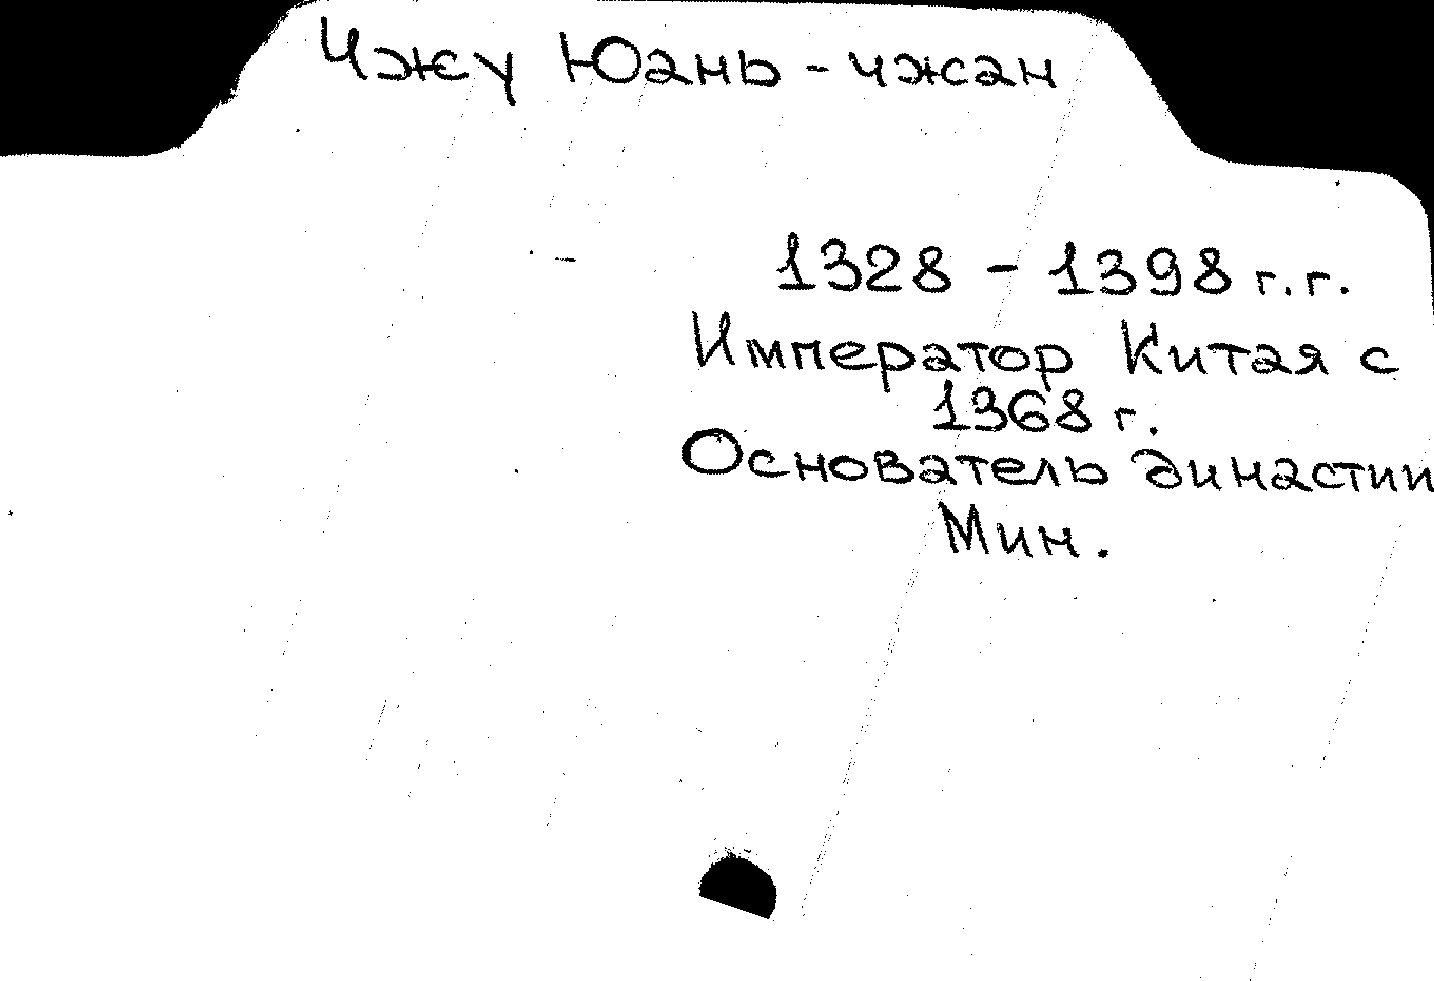 Чжу Юань-чжан
1328 - 1398 г.г.
Император Китая с
1368 г.
Основатель династии
Мин.